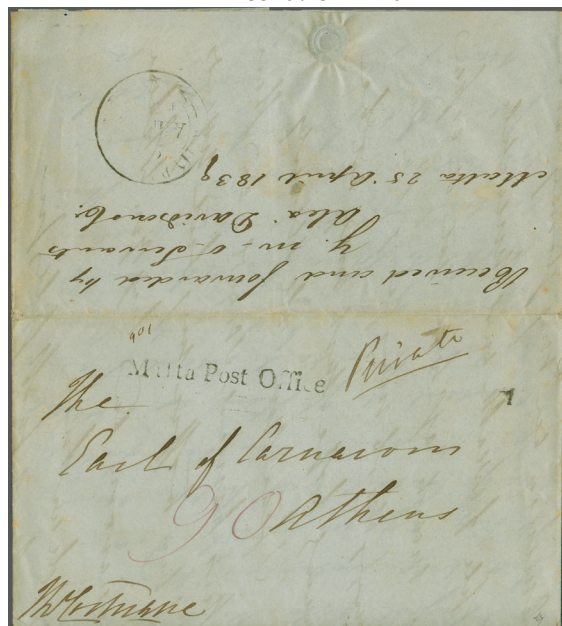 Received and forwarded by
Y. m. o. Servants
Alex Davidson & Co.
Malta 25 April 1839
Malta Post Office
Private
The
Earl of Carnarvon
90 Athens